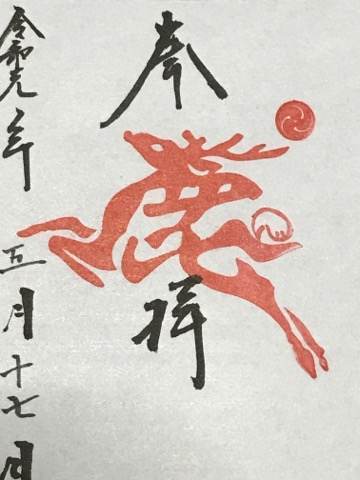 奉拝
鹿
令和元年五月十七日